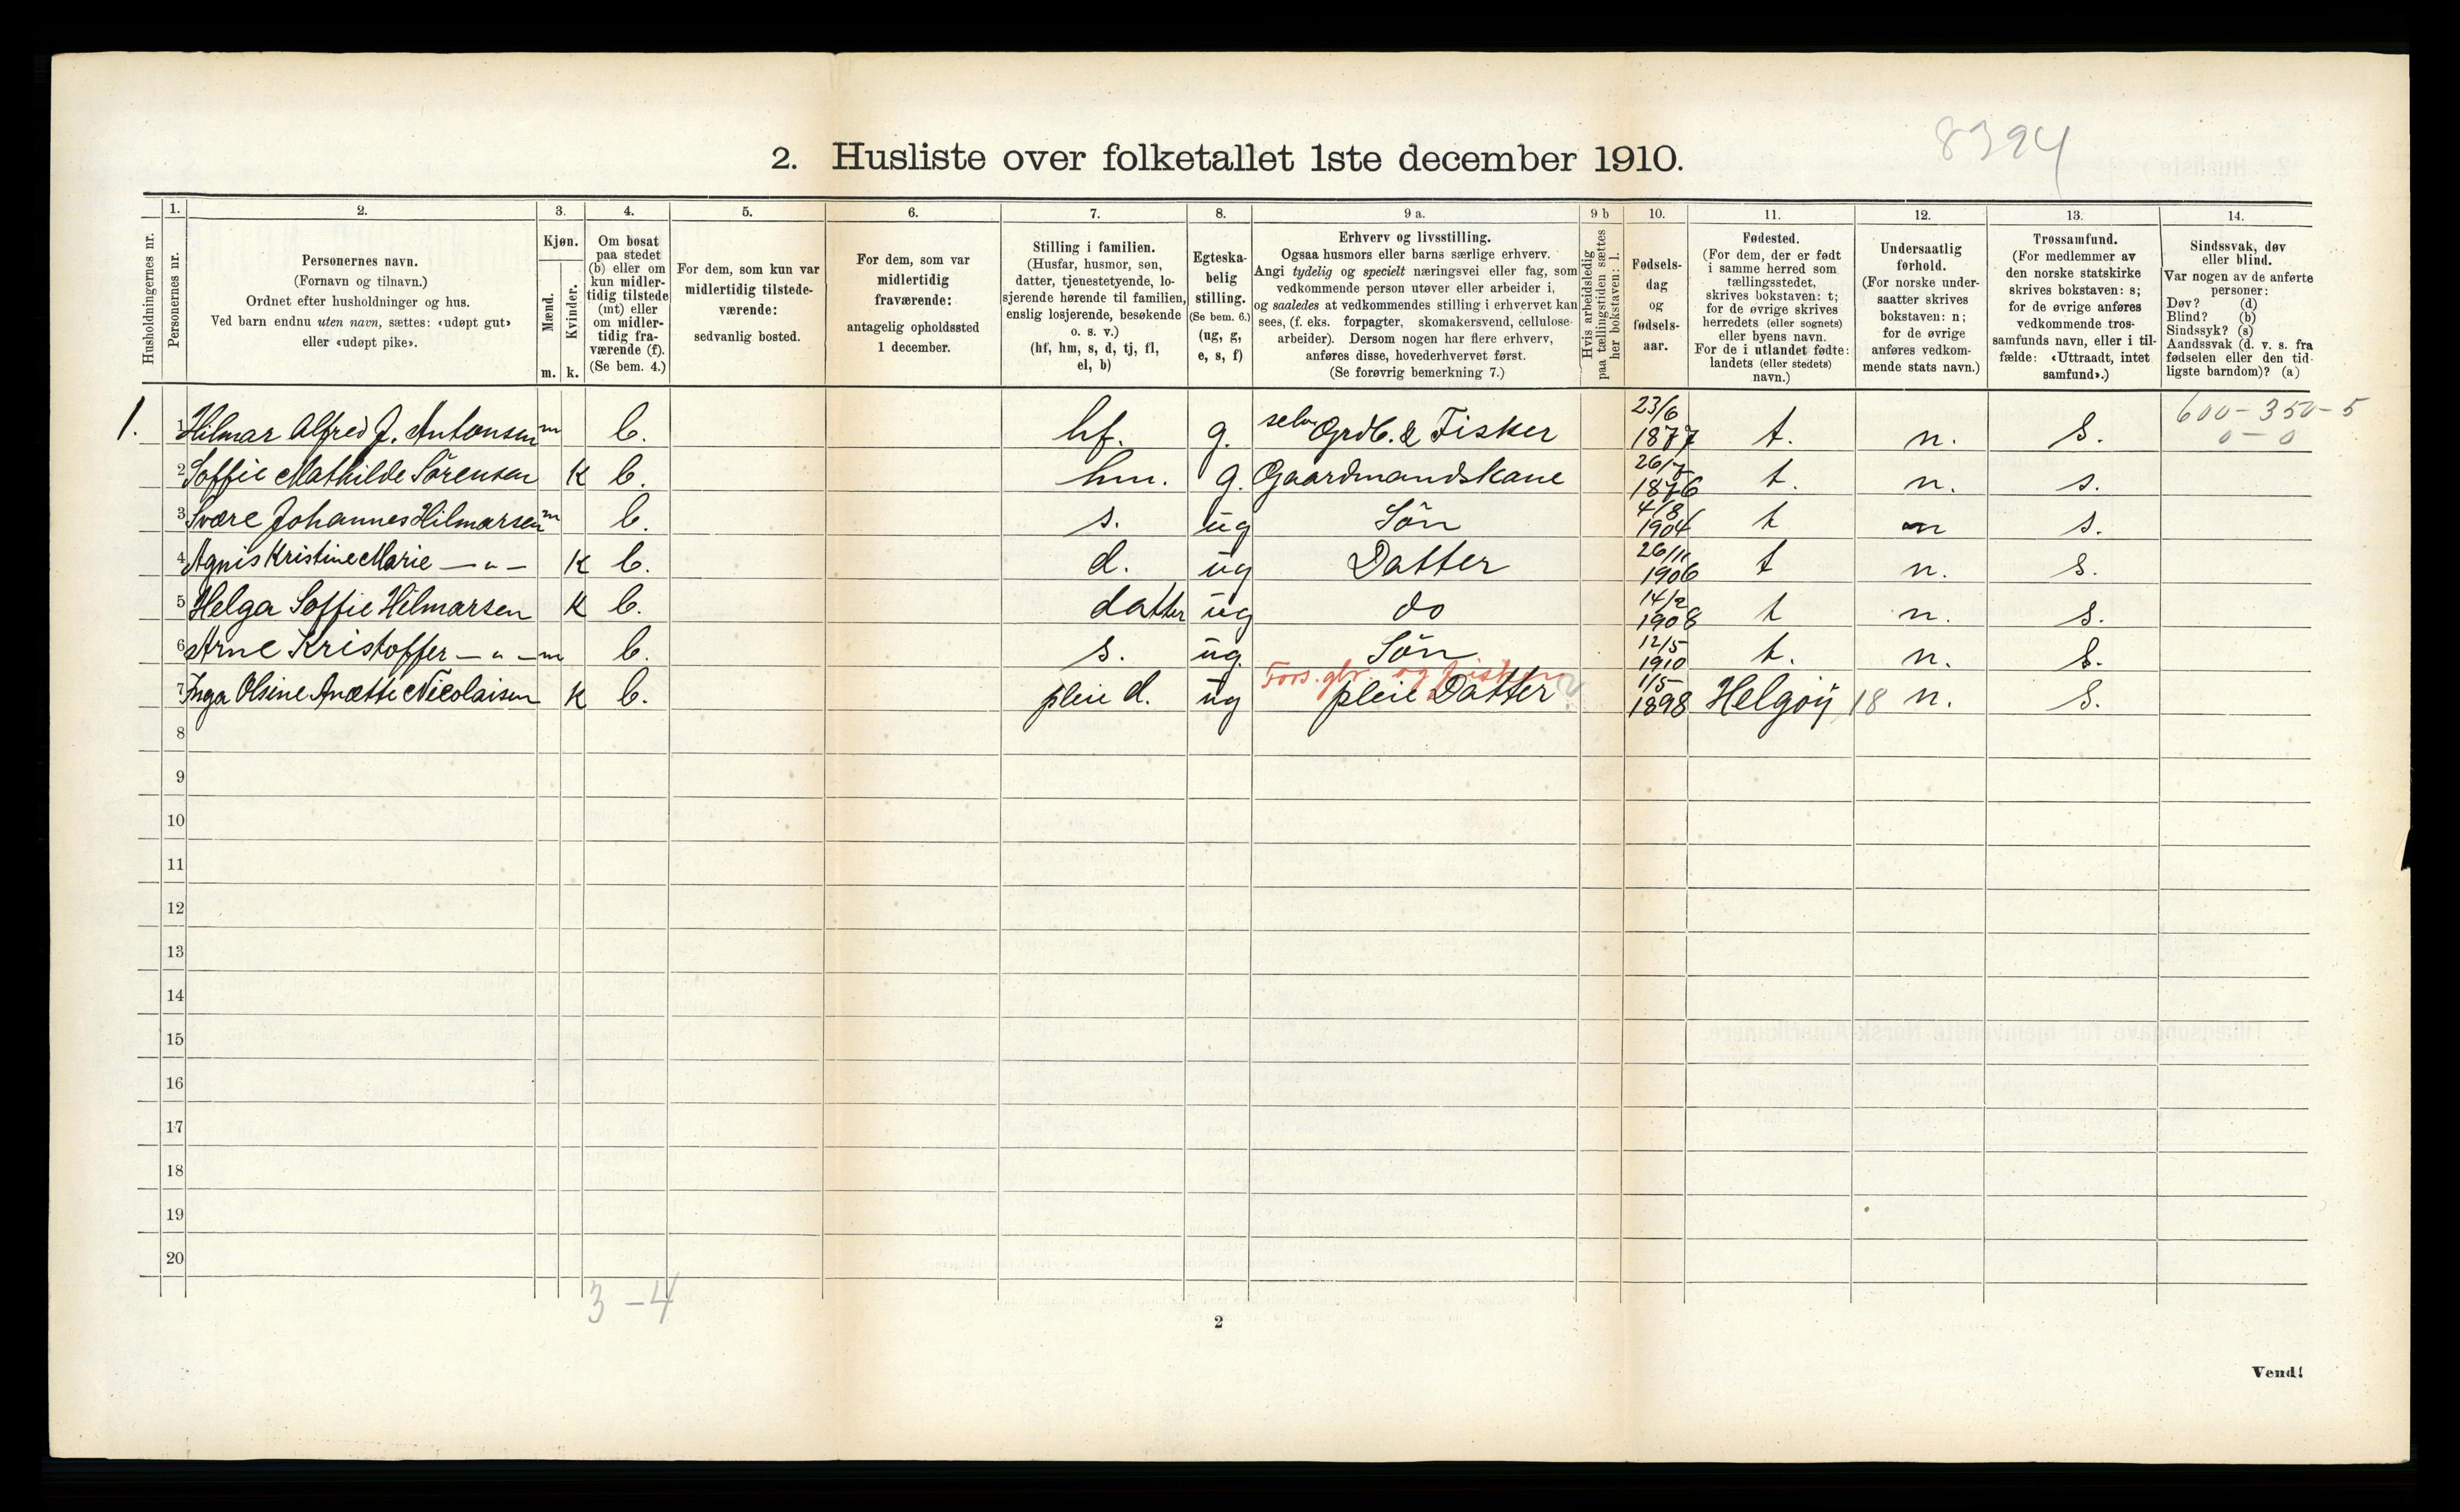 8394
2. Husliste over folketallet 1ste december 1910.
Husholdningernes nr.
1.
Personernes nr.
2.
Personernes navn.
(Fornavn og tilnavn.)
Ordnet efter husholdninger og hus.
Ved barn endnu uten navn, sættes: «udøpt gut»
eller «udøpt pike».
3.
Kjøn.
Mænd.
m.
Kvinder.
k.
4.
Om bosat
paa stedet
(b) eller om
kun midler-
tidig tilstede
(mt) eller
om midler-
tidig fra-
værende (f).
(Se bem. 4.)
5.
For dem, som kun var
midlertidig tilstede-
værende:
sedvanlig bosted.
6.
For dem, som var
midlertidig
fraværende:
antagelig opholdssted
1 december.
7.
Stilling i familien.
(Husfar, husmor, søn,
datter, tjenestetyende, lo-
sjerende hørende til familien,
enslig losjerende, besøkende
o. s. v.)
(hf, hm, s, d, tj, fl,
el, b)
8.
Egteska-
belig
stilling.
(Se bem. 6.)
(ug, g,
e, s, f)
9 a.
Erhverv og livsstilling.
Ogsaa husmors eller barns særlige erhverv.
Angi tydelig og specielt næringsvei eller fag, som
vedkommende person utøver eller arbeider i,
og saaledes at vedkommendes stilling i erhvervet kan
sees, (f. eks. forpagter, skomakersvend, cellulose-
arbeider). Dersom nogen har flere erhverv,
anføres disse, hovederhvervet først.
(Se forøvrig bemerkning 7.)
9 b
Hvis arbeidsledig
paa tællingstiden sættes
her bokstaven: l.
10.
Fødsels-
dag
og
fødsels-
aar.
11.
Fødested.
(For dem, der er født
i samme herred som
tællingsstedet,
skrives bokstaven: t;
for de øvrige skrives
herredets (eller sognets)
eller byens navn.
For de i utlandet fødte:
landets (eller stedets)
navn.)
12.
Undersaatlig
forhold.
(For norske under-
saatter skrives
bokstaven: n;
for de øvrige
anføres vedkom-
mende stats navn.)
13.
Trossamfund.
(For medlemmer av
den norske statskirke
skrives bokstaven: s;
for de øvrige anføres
vedkommende tros-
samfunds navn, eller i til-
fælde: «Uttraadt, intet
samfund».)
14.
Sindssvak, døv
eller blind.
Var nogen av de anførte
personer:
Døv? (d)
Blind? (b)
Sindssyk? (s)
Aandssvak (d. v. s. fra
fødselen eller den tid-
ligste barndom)? (a)
1. 1 Hilmar Alfred J. Antonsen m b. hf. g. selv Grdb. & Fisker 23/6 1877 t. n. s. 600-350-5 0-0
2 Soffie Mathilde Sörensen K b. hm. g. Gaardmandskone 26/7 1876 t. n. s.
3 Svære Johannes Hilmarsen m b. s. ug Sön 4/8 1904 t n s.
4 Agnis Kristine Marie — " — K b. d. ug Datter 26/11 1906 t n. s.
5 Helga Soffie Hilmarsen K b. datter ug do 14/2 1908 t n. s.
6 Arne Kristoffer — " — m b. s. ug. Sön 12/5 1910 t. n. s.
Fors. gbr. og fisker
7 Inga Olsine Anætte Nicolaisen K b. pleie d. ug pleie Datter 1/5 1898 Helgöy 18 n. s.
8
9
10
11
12
13
14
15
16
17
18
19
20
3-4
2
Vend!